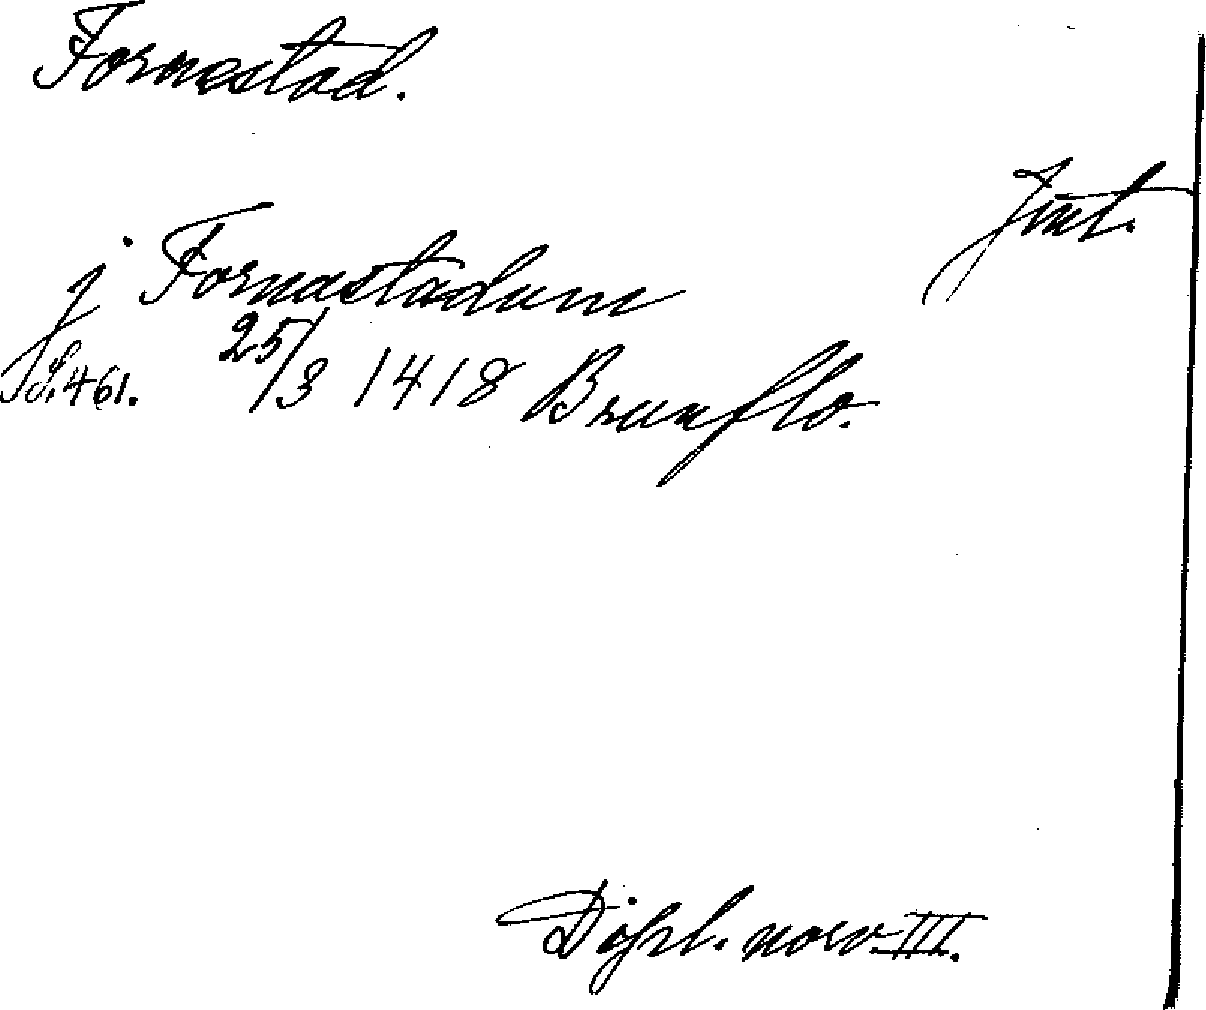 Fornestad.
Jmt.
j Fornastadum
S. 461. 25/3 1418 Brunflo.
Dipl. norv. III.